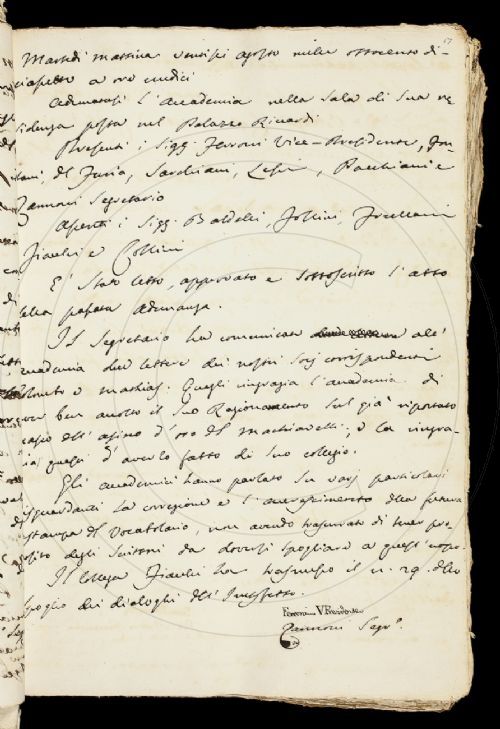 Martedì mattina ventisei agosto mille ottocento di-
ciasette a ore undici
Adunatasi l'Accademia nella Sala di sua re-
sidenza posta nel Palazzo Ricardi
Presenti i Sigg. Ferroni Vice-Presidente, Fon-
tani, del Furia, Sarchiani, Lessi, Bacchiani e
Zannoni Segretario
Assenti i Sigg. Baldelli, Follini, Fiacchi e Collini
È stato letto, approvato e sottoscritto l'atto
della passata adunanza.
Il Segretario ha comunicate all'
accademia due lettere dei nostri soci corrispondenti
e Mathias. Quegli ringrazia l'accademia di
aver ben accolto il suo Ragionamento sul già riportato
passo dell'asino d'oro del Machiavelli; e la ringra-
zia questi d'averlo fatto di suo collegio.
Gli accademici hanno parlato su varj particolari
risguardanti la correzione e l'accrescimento della futura
stampa del Vocabolario, non avendo trascurato di tener pro-
posito degli Scittori da doversi spogliare a quest'uopo.
Il Collega Fiacchi ha trasmesso il n. 29. dello
spoglio dei dialoghi dell'
Ferroni V. Presidente
Zannoni Segr.o